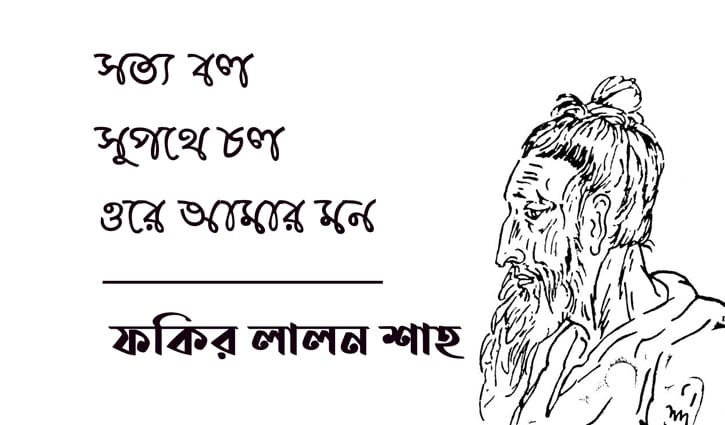 সত্য বল
সুপথে চল
ওরে আমার মন
ফকির লালন শাহ